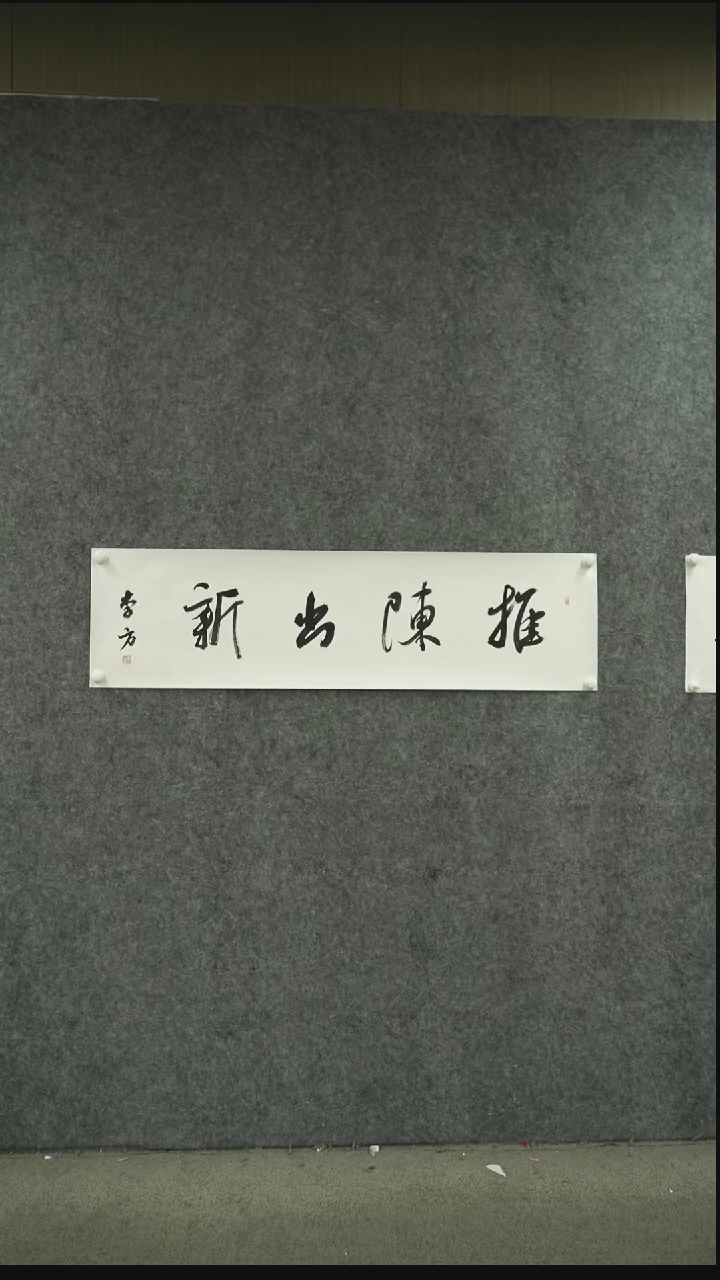 推陳出新
李方